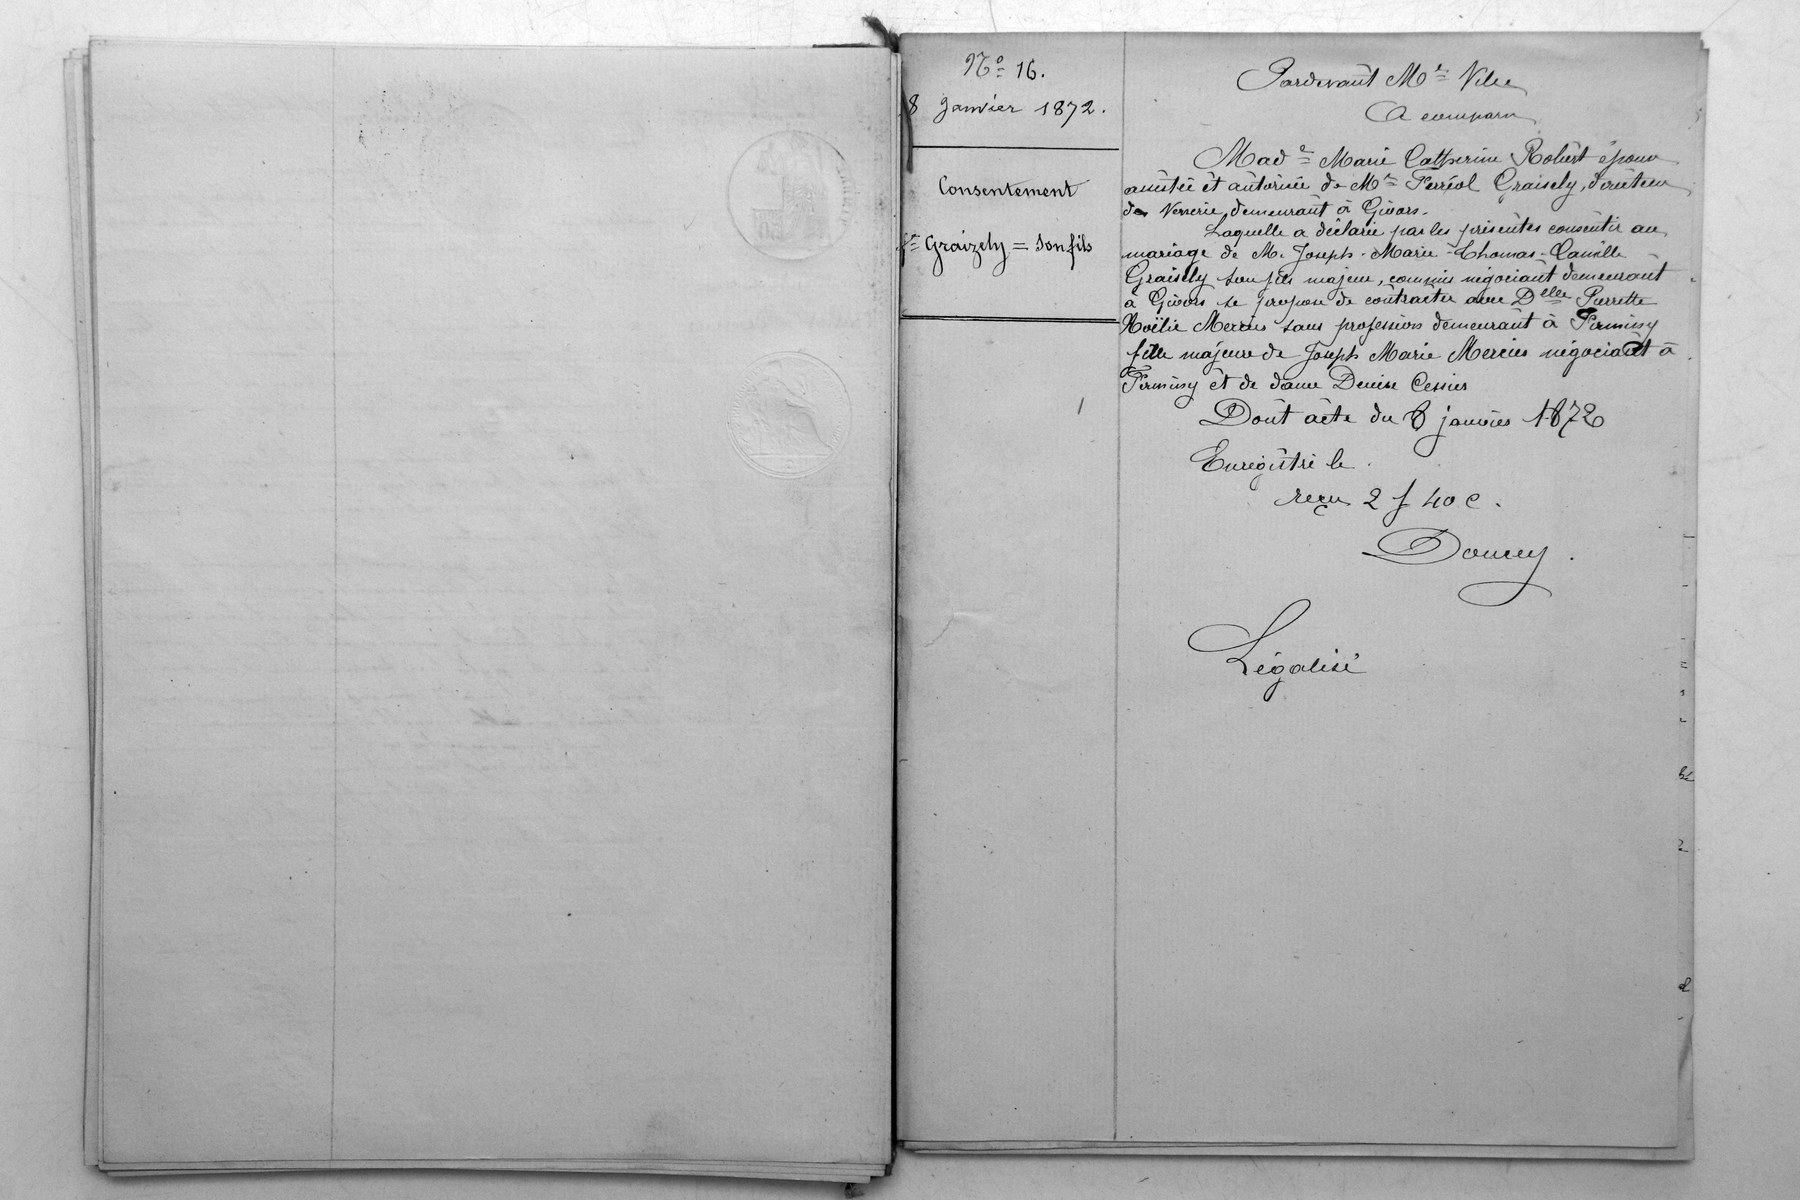 No 16.
8 Janvier 1872.
Consentement
fe Graizely = son fils
Pardevant Me
A comparu
Made Marie Catherine Robert épouse
assistée et autorisée de Mr Ferréol Graisely, directeur
de Verrerie, demeurant à Givors.
Laquelle a déclaré par les présentes consentir au
mariage de M. Joseph-Marie-Thomas-Camille
Graisely son fils majeur, commis négociant demeurant
à Givors se propose de contracter avec Delle Pierrette
Noëlie Mercier sans profession demeurant à Firminy
fille majeure de Joseph Marie Mercier négociant à
Firminy et de dame Denise
Dont acte du 8 janvier 1872
Enregistré le .
reçu 2 f 40 c .
Légalisé